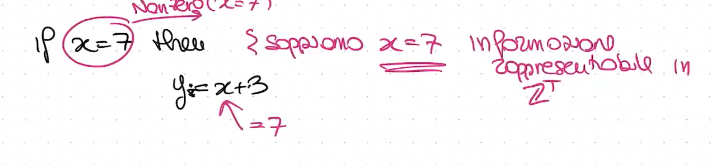 Nonzero(x=7)
if x=7 then { sappiamo x=7 informazione
rappresentabile in
y:=x+3 ℤᵀ
=7